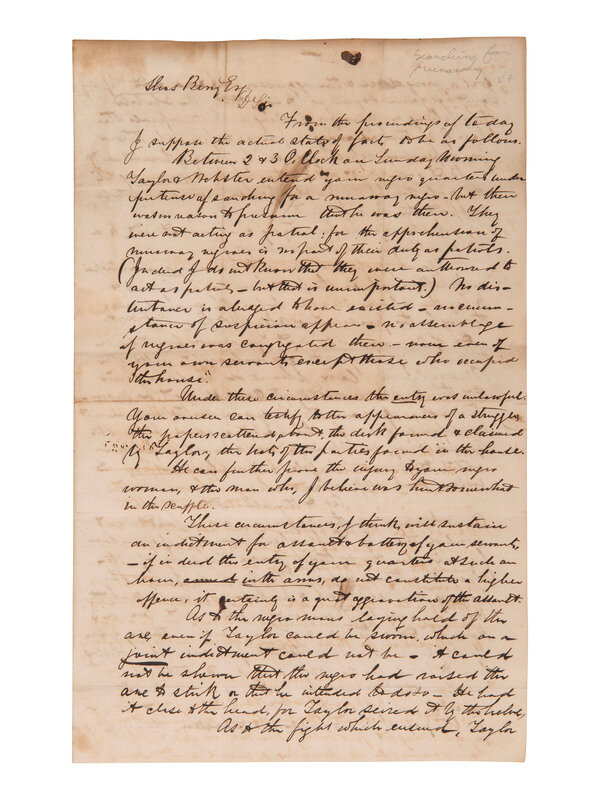 Searching for
runaway
Thos Berry Esq
D Sir
From the proceedings of to day
I suppose the actual state of facts to be as follows.
Between 2 & 3 O,Clock on Sunday Morning
Taylor & Webster entered your negro quarters under
pretense of searching for a runaway negro - but there
was no reason to presume that he was there. They
were not acting as patrol: for the apprehension of
runaway negroes is no part of their duty as patrols.
(Indeed I do not know that they were authorised to
act as patrols - but that is unimportant.) No dis-
turbance is alledged to have existed - no circum-
stance of suspicion appears - no assemblage
of negroes was congregated there - none even of
your own servants except those who occupied
"the house."
Under these circumstances the entry was unlawful.
Your can testify to the appearances of a struggle
the papers scattered about, the dirk found & claimed
by Taylor, the hats of the parties found in the house.
He can further prove the injury to your negro
woman, & the man who, I believe was hurt somewhat
in the scuffle.
These circumstances, I think, will sustain
an indictment for assault & battery of your servants,
- if indeed the entry of your quarters at such an
hour, armed with arms, do not constitute a higher
offence, it certainly is a great aggravation of the assault.
As to the negro mans laying hold of the
axe even if Taylor could be sworn, which on a
joint indictment could not be - it could
not be shown that the negro had raised the
axe to strike or that he intended to do so - He had
it close to the head, for Taylor seized it by the helve,
As to the fight which ensued, Taylor